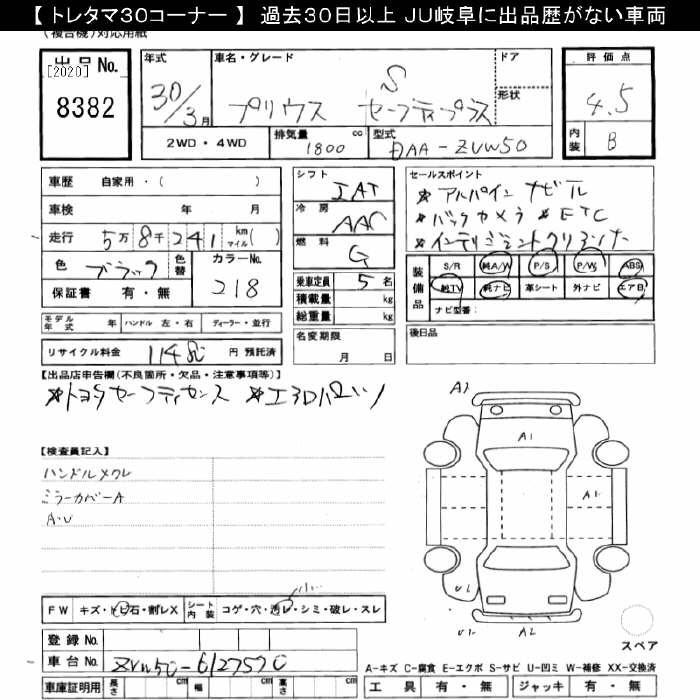 【 トレタマ30コーナー 】 過去30日以上 JU岐阜に出品歴がない車両
(複合機)対応用紙
出品No.
[2020]
8382
年式
30/3月
車名・グレード
S
プリウス セーフティプラス
ドア
形状
評価点
4.5
内装
B
2WD・4WD
排気量
1800 cc
型式
DAA-ZVW50
車歴 自家用・( )
車検 年 月
走行 5万8千241 km マイル( )
色 ブラック 色替 カラーNo.
218
保証書 有・無
モデル年式 年 ハンドル 左・右 ディーラー・並行
リサイクル料金 円 預託済
シフト IAT
冷房 AAC
燃料 G
乗車定員 5名
積載量 kg
総重量 kg
名変期限
月 日
セールスポイント
※アルパインナビTV
※バックカメラ ※ETC
※インテリジェントクリアソナー
装備品
S/R 純A/W P/S P/W ABS
純TV 純ナビ 革シート 外ナビ エアB
ナビ型番:
後日品
【出品店申告欄(不良箇所・欠品・注意事項等)】
※トヨタセーフティセンス ※エアロバンパー
【検査員記入】
ハンドルメクレ
ミラーカバーA
A・U
FW キズ・トビ石・割レX シート内装 コゲ・穴・透レ・シミ・破レ・スレ
小
登録No.
車台No. ZVW50-6127570
車庫証明用 長さ cm 幅 cm 高さ cm
A1
A1
A1
U1
U1 A2
スペア
A-キズ C-腐食 E-エクボ S-サビ U-凹ミ W-補修 XX-交換済
工具 有・無 ジャッキ 有・無